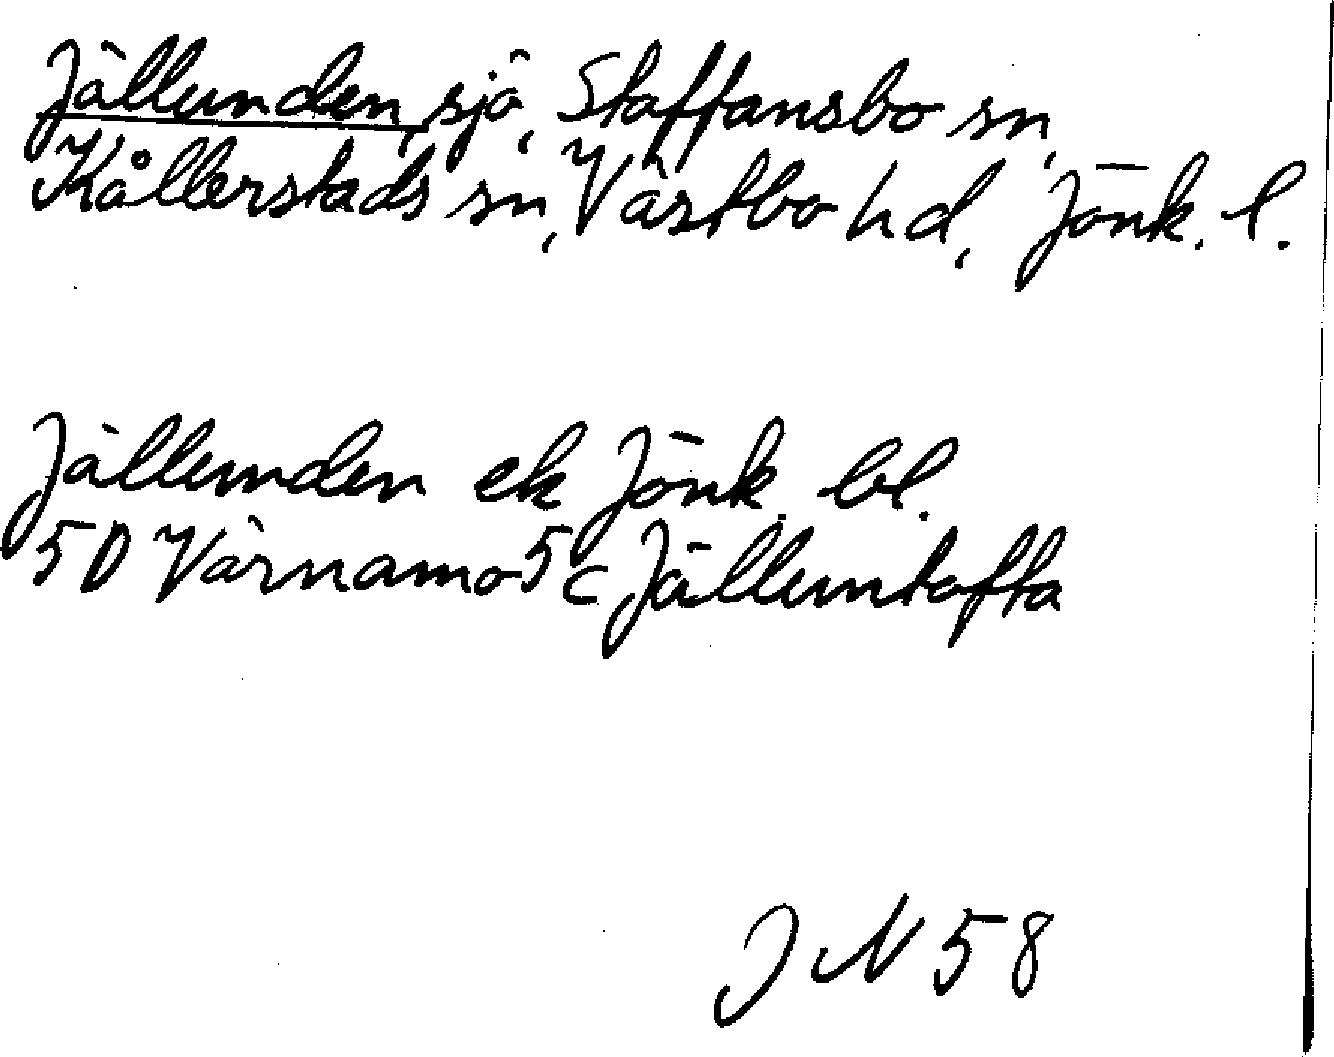 Jällunden, sjö, Staffansbo sn,
Kållerstads sn, Västbo hd, Jönk. l.
Jällunden ek Jönk. bl.
5D Värnamo 5c Jälluntofta
JN 58